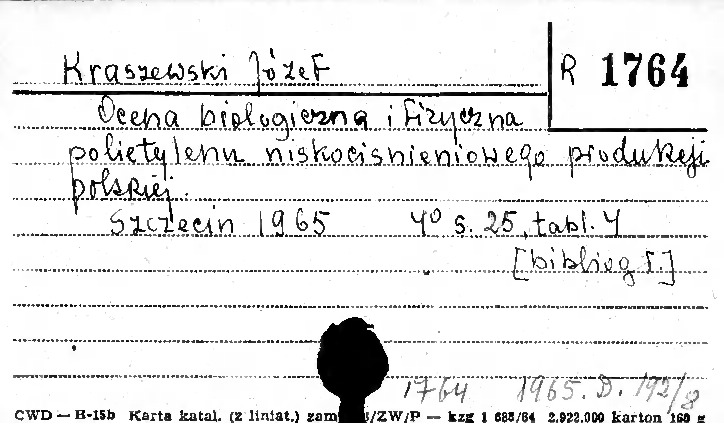 Kraszewski Józef
R 1764
Ocena biologiczna i fizyczna
polietylenu niskociśnieniowego produkcji
polskiej.
Szczecin 1965 4° s. 25, tabl. 4
[bibliogr.]
1764 1965. D. 192/8
CWD — H-15b Karta katal. (z liniat.) zam /ZW/P — kzg 1 685/64 2.922.000 karton 160 g